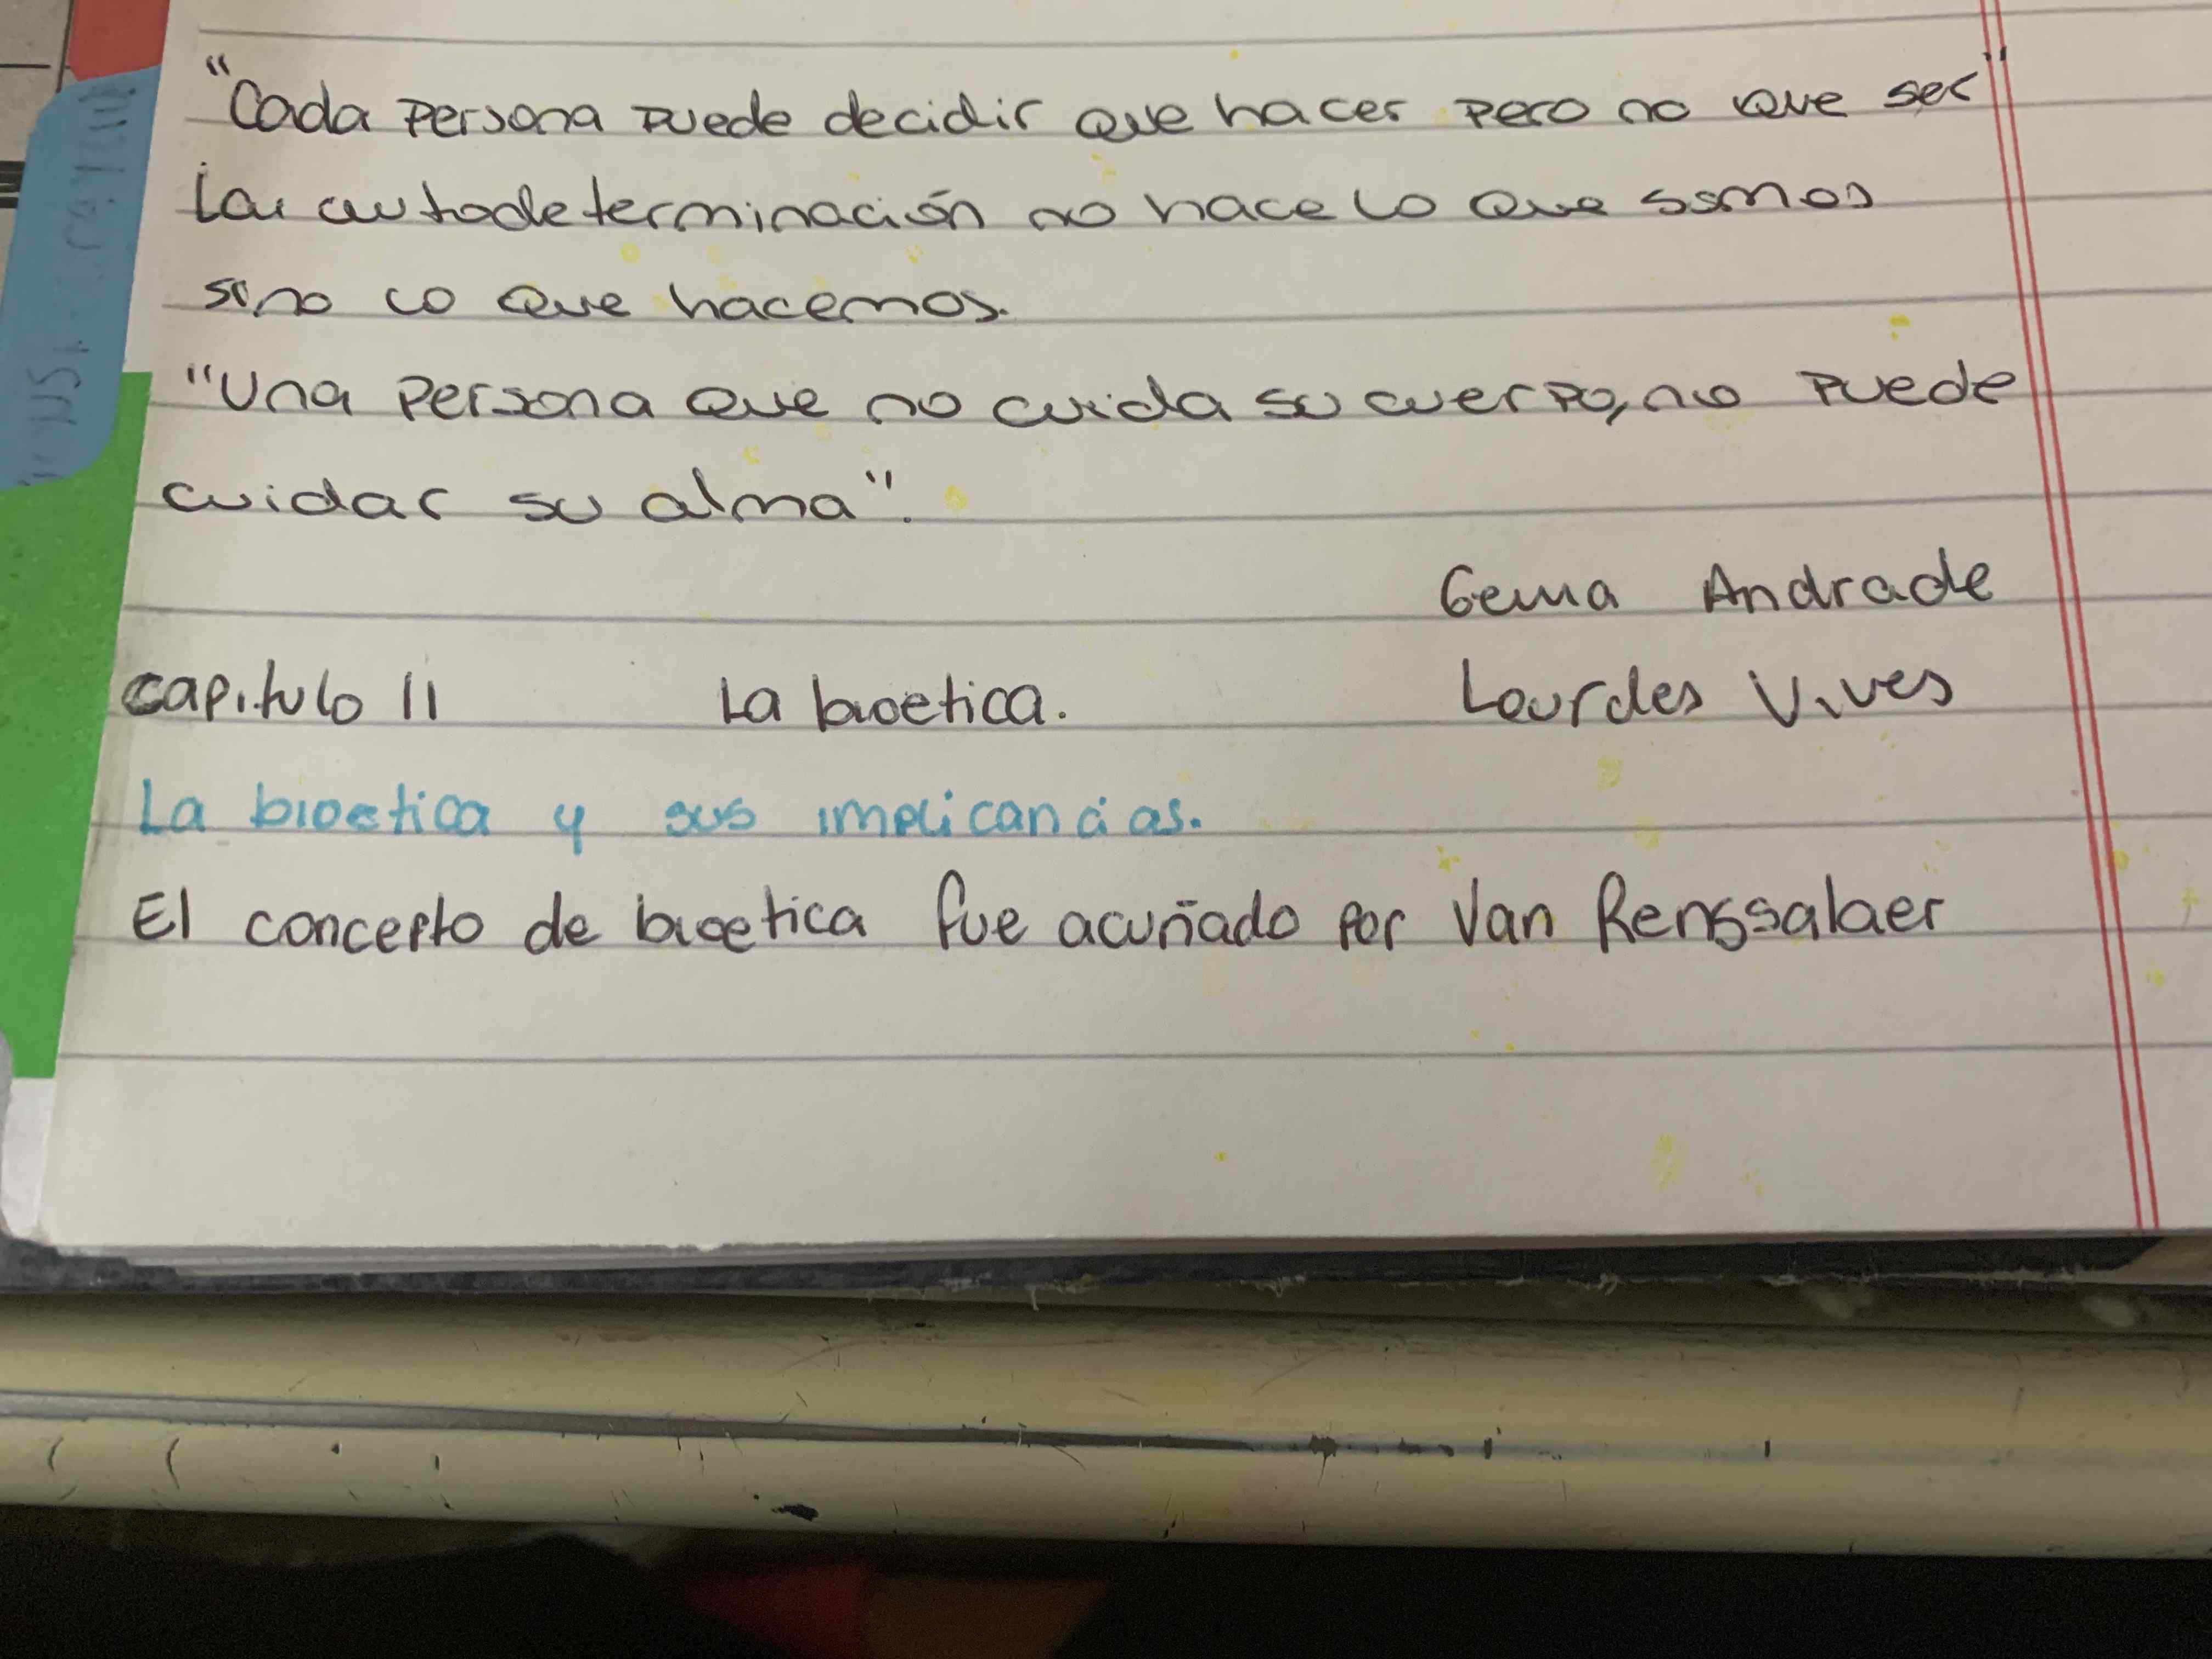 "Cada persona puede decidir que hacer pero no que ser"
La autodeterminación no hace lo que somos
sino lo que hacemos.
"Una persona que no cuida su cuerpo, no puede
cuidar su alma".
Gema Andrade
capitulo II La bioetica. Lourdes Vives
La bioetica y sus implicancias.
El concepto de bioetica fue acuñado por Van Renssalaer